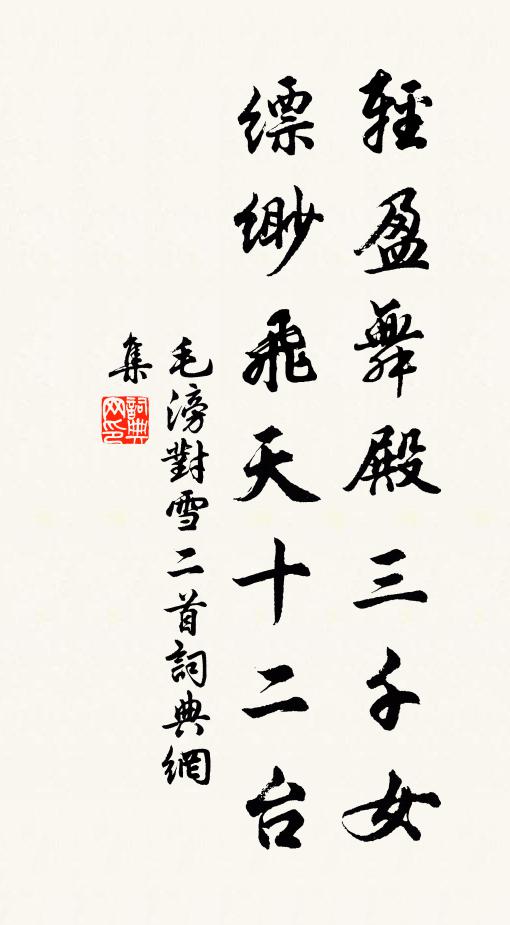 輕盈舞殿三千女
縹緲飛天十二台
毛滂對雪二首詞典網
集
詞典
网印